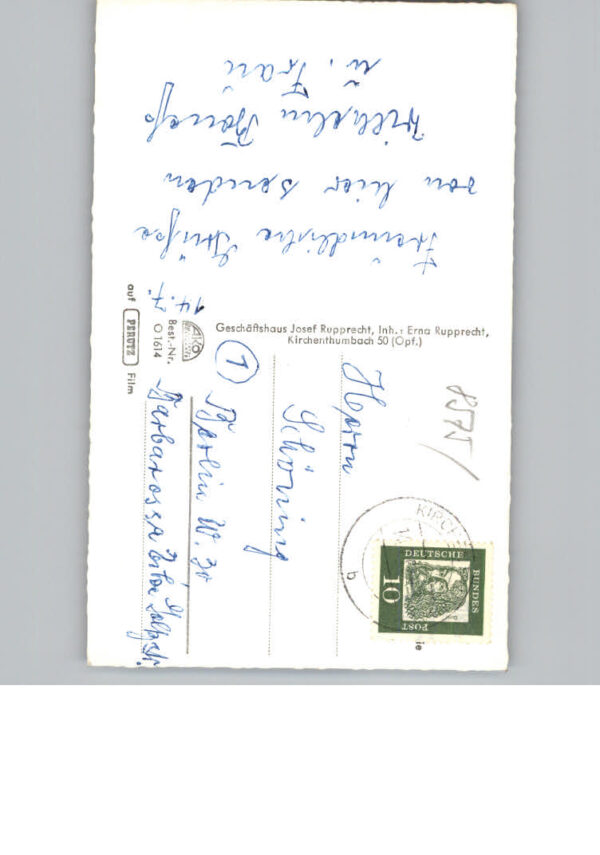 Freundliche Grüße
von hier senden
Wilhelm
u. Frau
14.7.
Geschäftshaus Josef Rupprecht, Inh.: Erna Rupprecht,
Kirchenthumbach 50 (Opf.)
AKO
Best.-Nr.
O 1614
auf PERUTZ Film
Herrn
Schöning
(1) Berlin W. 30
Barbarossa
8575/
KIRCHE
b
DEUTSCHE
BUNDES
POST
10
ie